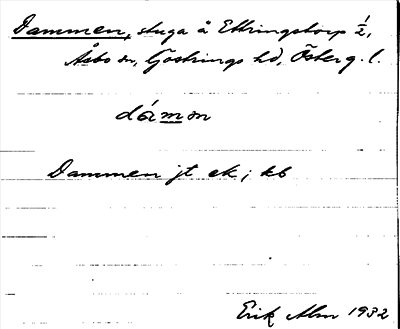 Dammen, stuga å Ettringstorp ½,
Åsbo sn, Göstrings hd, Österg. l.
dámən
Dammen jt ek; kb
Erik Alm 1932